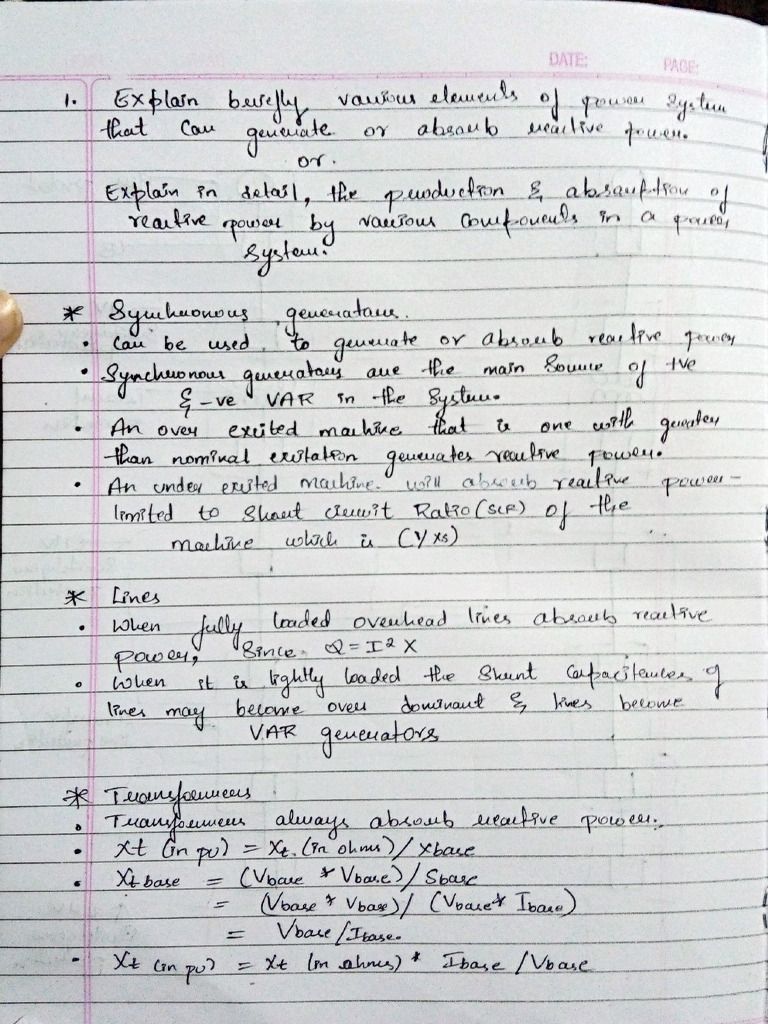 DATE: PAGE:
1. Explain briefly various elements of power system
that can generate or absorb reactive power.
or.
Explain in detail, the production & absorption of
reactive power by various components in a power
system.
* Synchronous generators.
• Can be used to generate or absorb reactive power
• Synchronous generators are the main source of +ve
& -ve VAR in the system.
• An over excited machine that is one with greater
than nominal exitation generates reactive power.
• An under exited machine. will absorb reactive power-
limited to Short circuit Ratio (SCR) of the
machine which is (1/xs)
* Lines
• When fully loaded overhead lines absorb reactive
power, Since Q = I² X
• When it is lightly loaded the Shunt Capacitances of
lines may become over dominant & lines become
VAR generators
* Transformers
• Transformers always absorb reactive power.
• Xt (in pu) = Xt (in ohms) / Xbase
• Xt base = (Vbase * Vbase) / Sbase
= (Vbase * Vbase) / (Vbase * Ibase)
= Vbase / Ibase.
• Xt (in pu) = Xt (in ohms) * Ibase / Vbase